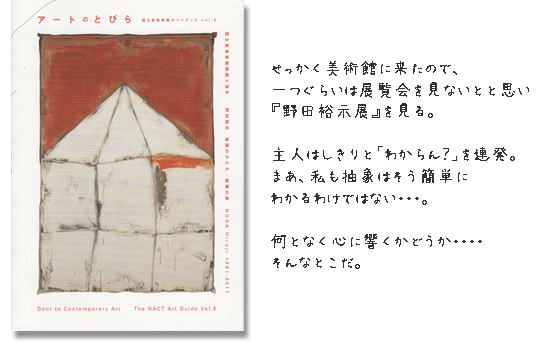 アートのとびら 国立新美術館ガイドブック vol.8
国立新美術館開館5周年 野田裕示 絵画のかたち/絵画の姿 NODA Hiroji 1981-2011
Door to Contemporary Art The NACT Art Guide Vol.8
せっかく美術館に来たので、
一つぐらいは展覧会を見ないとと思い
『野田裕示展』を見る。
主人はしきりと「わからん?」を連発。
まあ、私も抽象はそう簡単に
わかるわけではない・・・。
何となく心に響くかどうか・・・・
そんなとこだ。